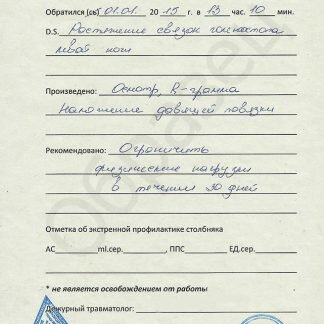 Обратился (сь) 01.01. 2015 г. в 13 час. 10 мин.
D.S. Растяжение связок голеностопа
левой ноги
Произведено: Осмотр, R-грамма
Наложение давящей повязки
Рекомендовано: Ограничить
физические нагрузки
в течении 30 дней
Отметка об экстренной профилактике столбняка
АС ml.сер. , ППС ЕД.сер.
* не является освобождением от работы
Дежурный травматолог: